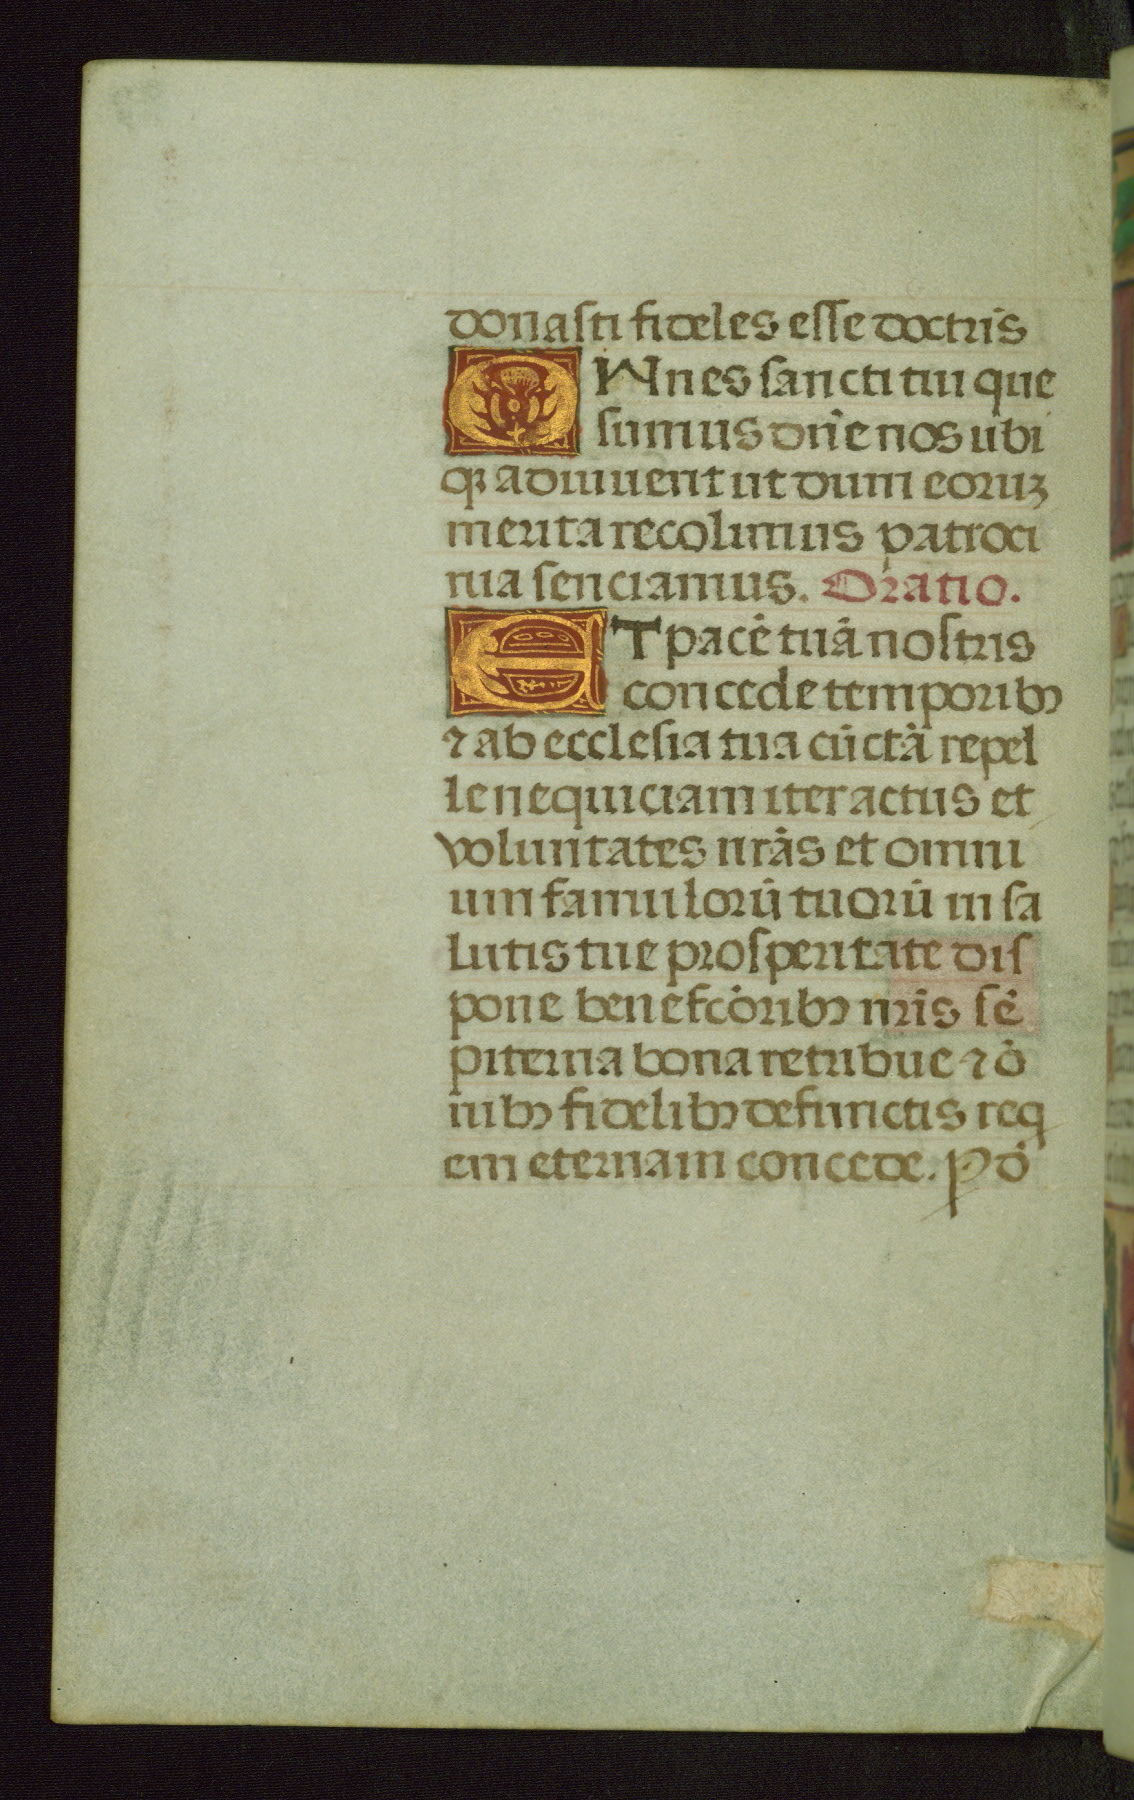 donasti fideles esse doctris
OMnes sancti tui que
sumus dñe nos ubi
qꝫ adiuuent ut dum eoruꝫ
merita recolimus patroci
nia senciamus. Oratio.
ET pacē tuā nostris
concede temporibꝰ
⁊ ab ecclesia tua cūctā repel
le nequiciam iter actus et
voluntates nrās et omni
um famulorū tuorū in sa
lutis tue prosperitate dis
pone benefcōribꝰ nrīs sē
piterna bona retribue ⁊ ō
nibꝰ fidelibꝰ defunctis req
em eternam concede. P dō